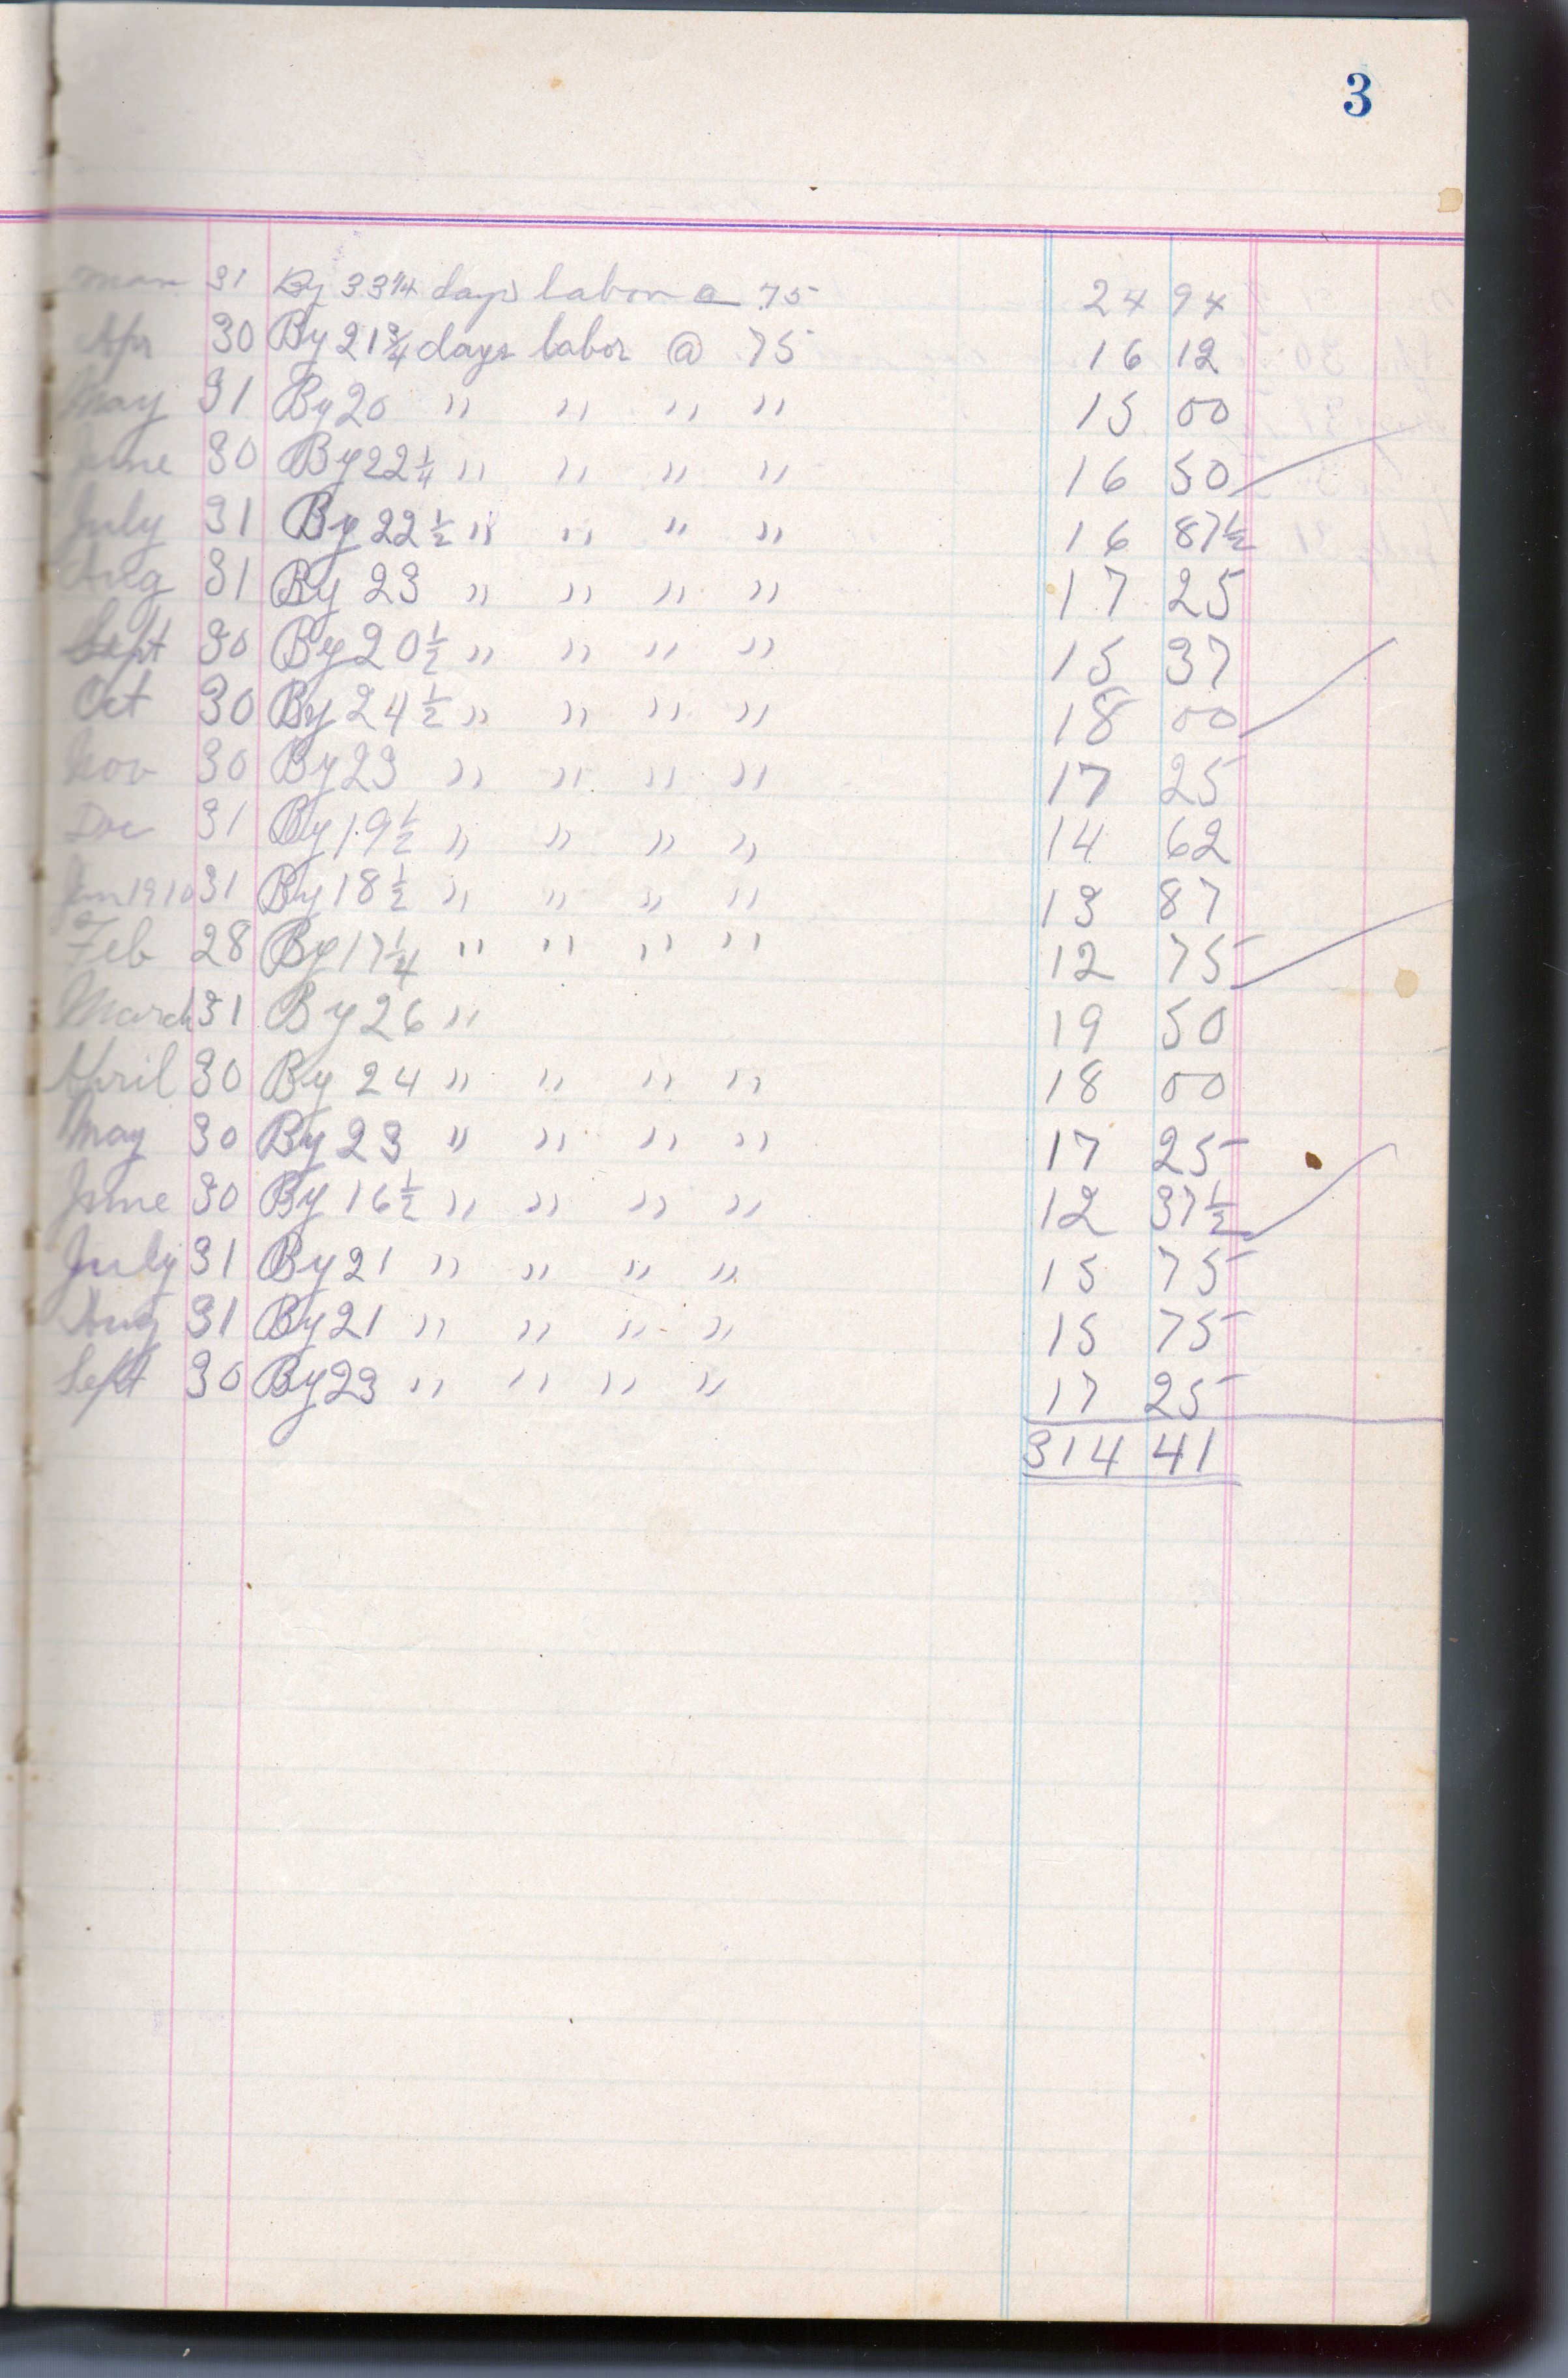 3
Mar 31 By 33 1/4 days labor @ 75 24 94
Apr 30 By 21 3/4 days labor @ 75 16 12
May 31 By 20 " " " " 15 00
June 30 By 22 1/4 " " " " 16 50
July 31 By 22 1/2 " " " " 16 87 1/2
Aug 31 By 23 " " " " 17 25
Sept 30 By 20 1/2 " " " " 15 37
Oct 30 By 24 1/2 " " " " 18 00
Nov 30 By 23 " " " " 17 25
Dec 31 By 19 1/2 " " " " 14 62
Jan 1910 31 By 18 1/2 " " " " 13 87
Feb 28 By 17 1/4 " " " " 12 75
March 31 By 26 " 19 50
April 30 By 24 " " " " 18 00
May 30 By 23 " " " " 17 25
June 30 By 16 1/2 " " " " 12 37 1/2
July 31 By 21 " " " " 15 75
Aug 31 By 21 " " " " 15 75
Sept 30 By 23 " " " " 17 25
314 41